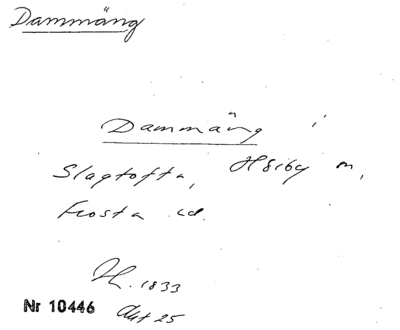 Dammäng
Dammäng i
Slagtofta, Hörby sn,
Frosta hd.
1833
Nr 10446 Akt 25